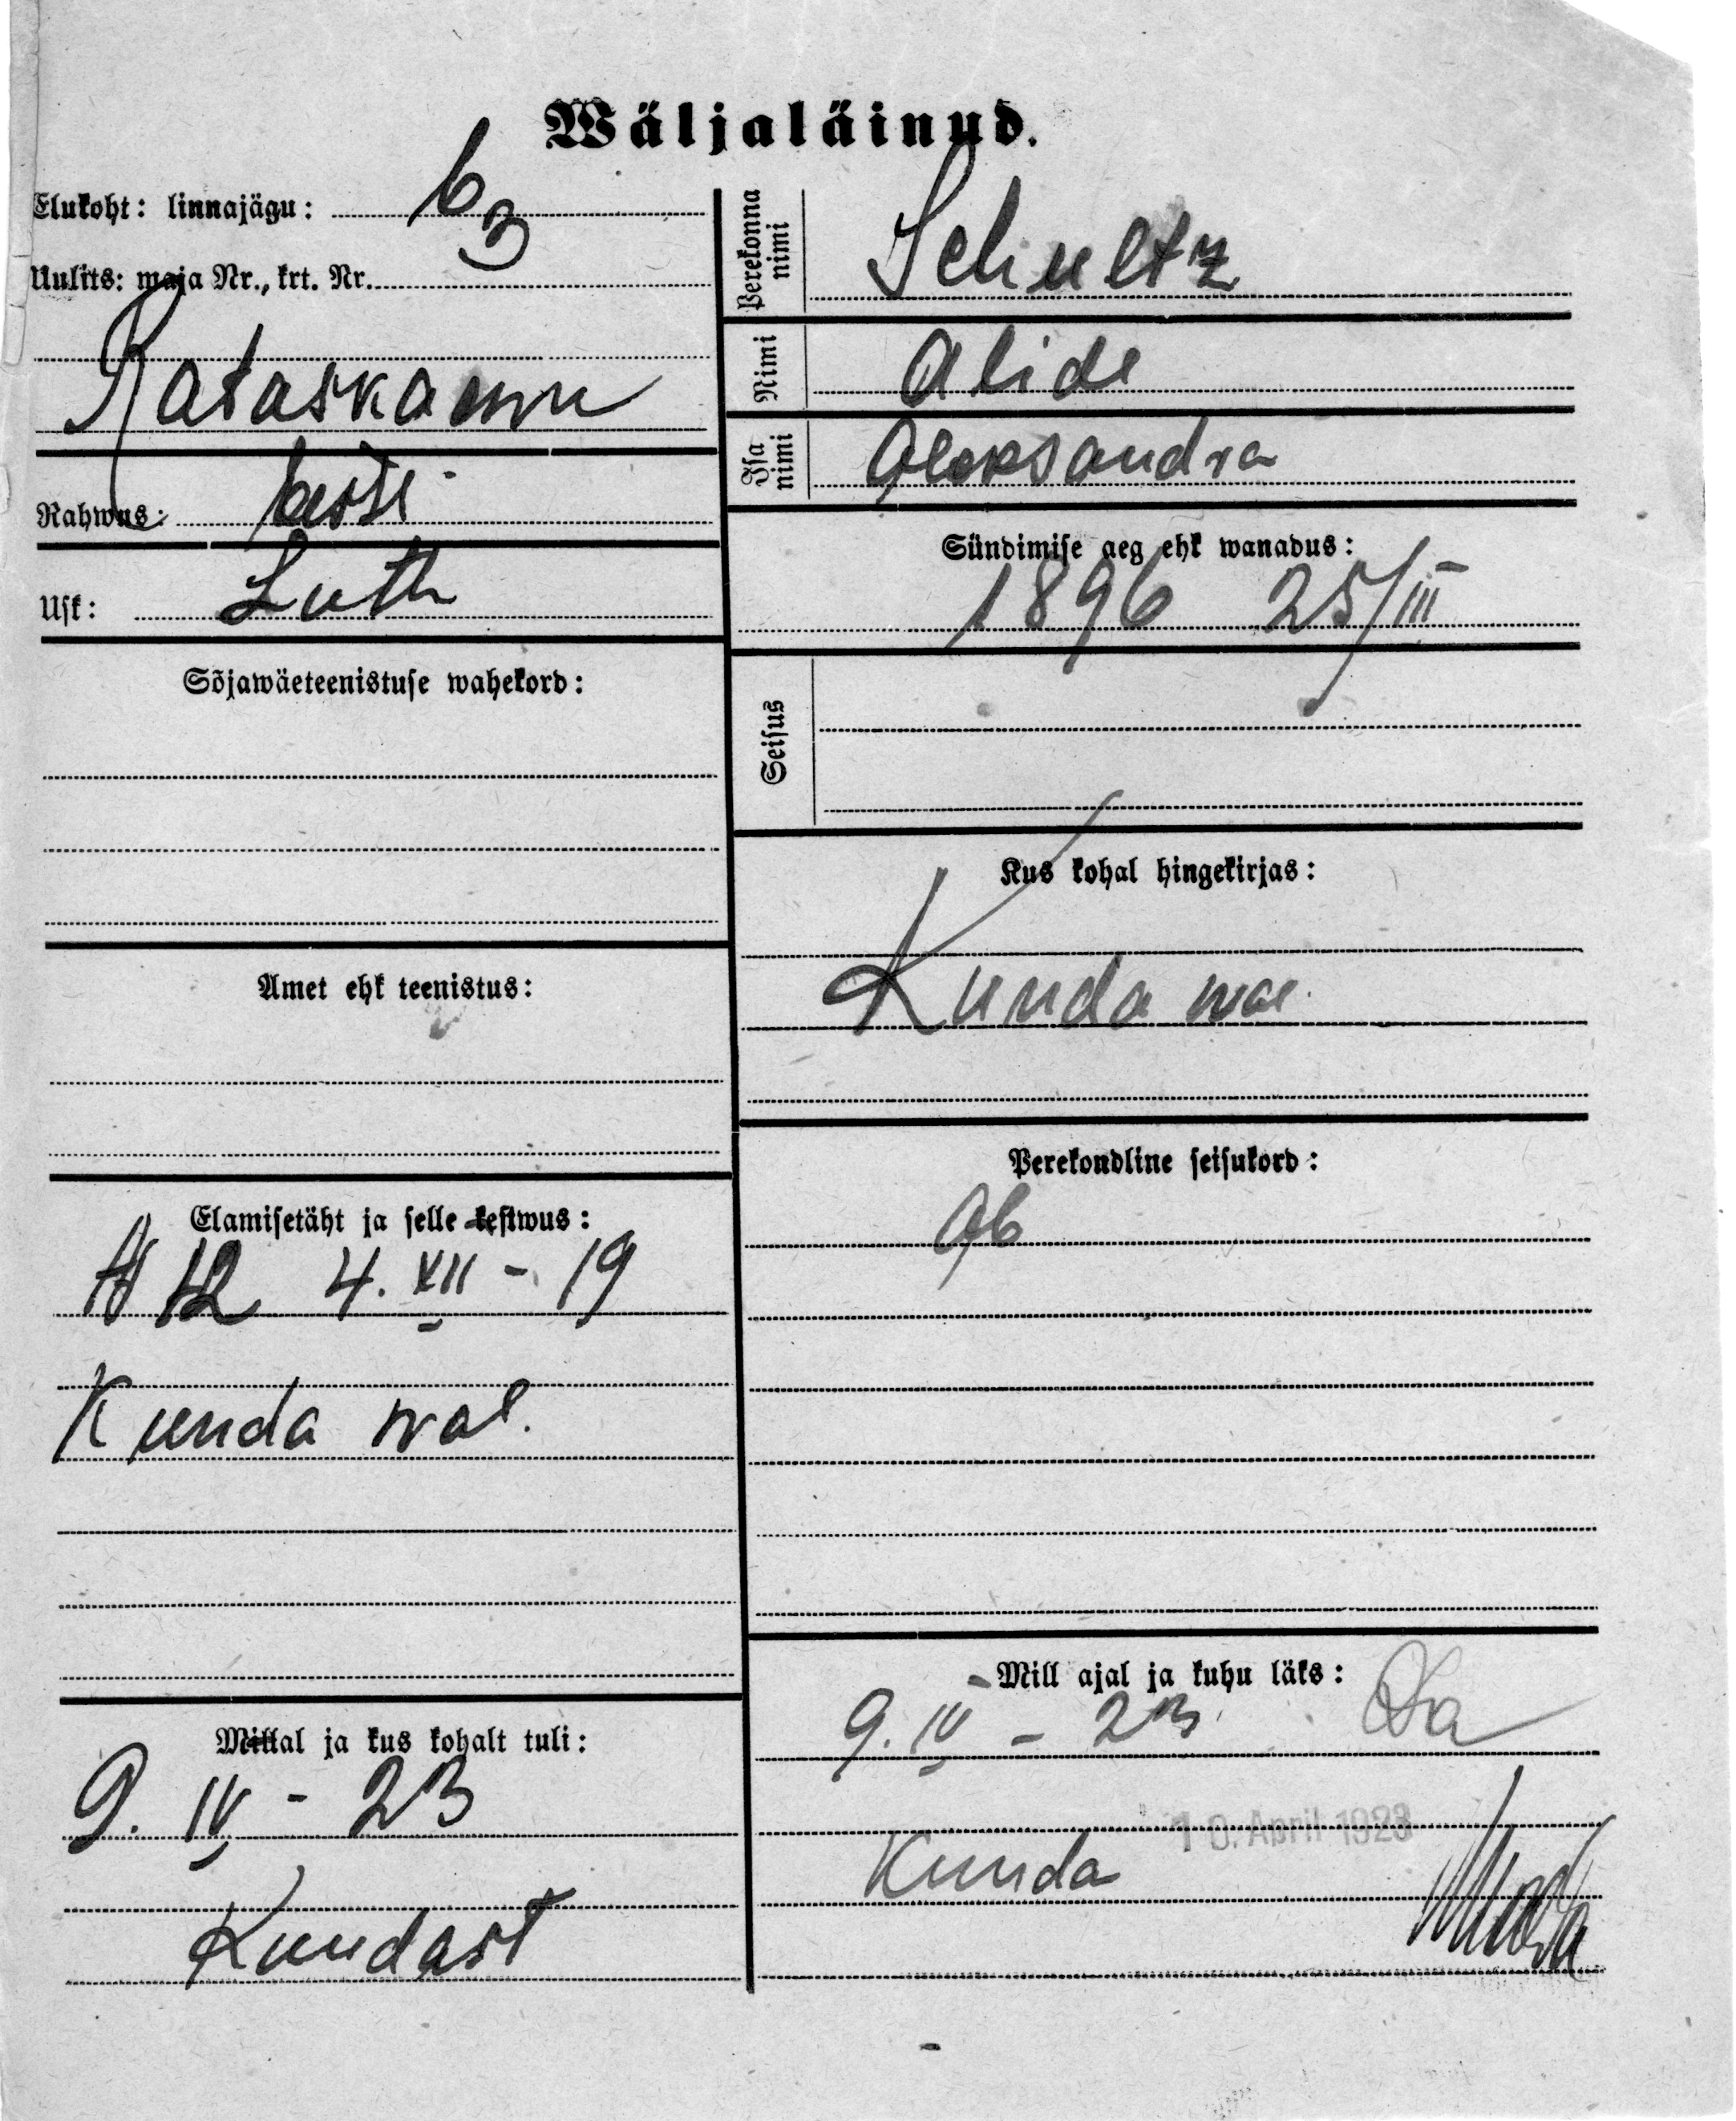 Wäljaläinud.
Elukoht: linnajägu: 6
3
Uulits: maja Nr., krt. Nr.
Rataskaevu
Rahwus: Eesti
Usk: Luth
Sõjawäeteenistuse wahekord:
Amet ehk teenistus:
Elamisetäht ja selle kestwus:
№ 12 4. XII - 19
Kunda wal.
Millal ja kus kohalt tuli:
9. IV - 23
Kundast
Perekonna nimi Schultz
Nimi Alide
Isa nimi Aleksandra
Sündimise aeg ehk wanadus:
1896 25/III
Seisus
Kus kohal hingekirjas:
Kunda wal.
Perekondline seisukord:
Ab
Mill ajal ja kuhu läks:
9. IV - 23
10. April 1923
Kunda